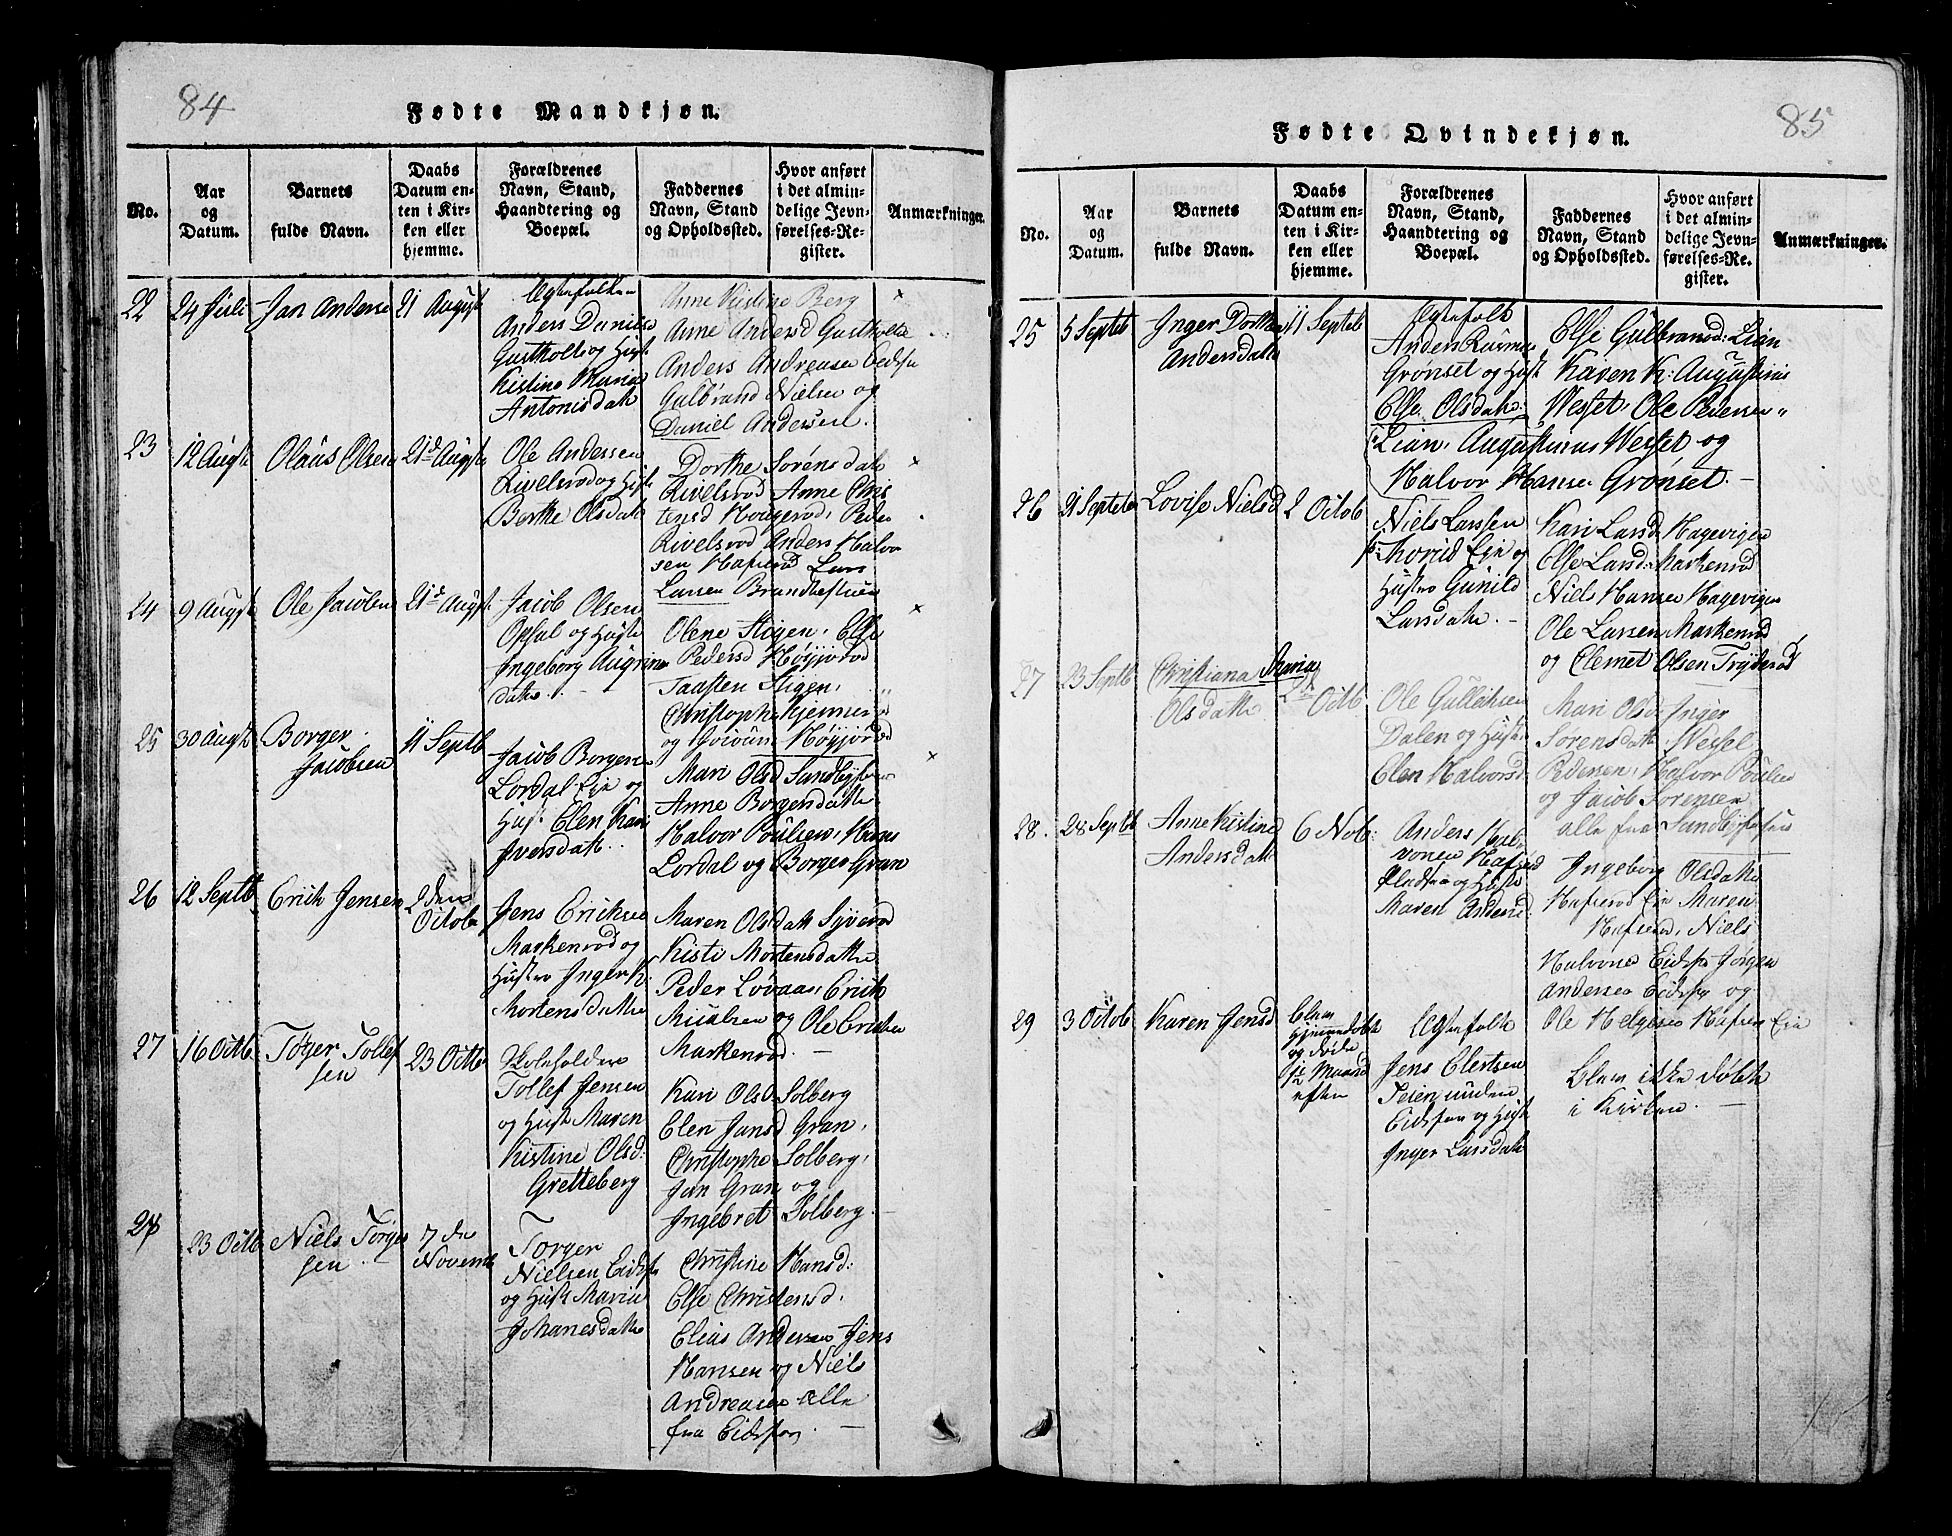 84
Fødte Mandkjøn.
No.
Aar
og
Datum.
Barnets
fulde Navn.
Daabs
Datum en-
ten i Kir-
ken eller
hjemme.
Forældrenes
Navn, Stand,
Haandtering og
Boepæl.
Faddernes
Navn, Stand
og Opholdssted.
Hvor anført
i det almin-
delige Jevn-
førelses-Re-
gister.
Anmærkninger.
22
24 Juli
Jan Anderse
21 August
Egtefolkene
Anders Daniels
Gustholt og Hust
Kistine Maria
Antonisdatt
Anne Kistine Berg
Anne Andersd Gustholt
Anders Andreasen Eidsfos
Gulbrand Nielsen og
Daniel Andersen.
23
12 Augst
Olaus Olsen
21d Augst
Ole Andersen
Rivelsrød og Hust
Berthe Olsdatt
Dorthe Sørensdatt
Rivelsrød Anne Chris
tensd Hougerød, Peder
Rivelsrød Anders Halvor
sen Hafsrød Lars
Larsen
24
9 Augst
Ole Jacobsen
21d Augst
Jacob Olsen
Opsal og Hust
Ingeborg
datt.
Olene Stigen, Else
Pedersd Høyjord
Taasten Stigen,
Christopher
og Høyjord
25
30 Augst
Borger
Jacobsen
11 Septb
Jacob Borgersen
Lordal Eje og
Hust. Elen Kari
Iversdatt.
Mari Olsd Sandby
Anne Borgersdatter
Halvor Poulsen, Hans
Lordal og Borger Gran
26
12 Septb
Erich Jensen
2 den
Octob
Jens Eriksen
Markenrød og
Hustro Inger K
Mortensdatter
Maren Olsdatt
Kisti Mortensdatter
Peder Lovaas, Erich
og Ole Erichsen
Markenrød.
27
16 Octb
Torger Tollef
sen
23 Octb
Skoleholder
Tollef Jensen
og Hust Maren
Kistine Olsd:
Gretteberg
Kari Olsd Solberg
Elen Jansd Gran,
Christopher Solberg,
Jan Gran og
Ingebret Solberg.
28
23 Octb
Niels Torger
sen
7 de
Novemb
Torger
Nielsen Eidsfos
og Hust Maria
Johanesdatter
Christine Hansd:
Else Christensd.
Elias Andersen Jens
Hansen og Niels
Andreasen alle
fra Eidsfos.
85
Fødte Qvindekjøn.
No.
Aar
og
Datum.
Barnets
fulde Navn.
Daabs
Datum en-
ten i Kir-
ken eller
hjemme.
Forældrenes
Navn, Stand,
Haandtering og
Boepæl.
Faddernes
Navn, Stand
og Opholdssted.
Hvor anført
i det almin-
delige Jevn-
førelses-Re-
gister.
Anmærkninger.
25
5 Septeb
Inger Dorthea
Andersdatter
11 Septeb
Egtefolk
Anders Rasmus
Grønset og Hust
Else Olsdatter
Else Gulbrandsd: Lian
Karen K: Augustinus
Wesset, Ole Pedersen
Lian, Augustinus Wesset og
Halvor Hansen Grønset.
26
21 Septeb
Lovise Nielsd
2 Octob
Niels Larssen
Eje og
Hustro Gunild
Larsdatter.
Kari Larsd Hagevigen
Else Larsd. Markenrød
Niels Hansen Hagevigen
Ole Larsen Markenrød
og Clemet Olsen Tryterød
27
23 Septb
Christiana Maria
Olsdatter
2de Octb
Ole Gullichsen
Dalen og Hust
Elen Halvorsd
Mari Olsd Inger
Sorensdatt Wessel
Pedersen, Halvor Poulsen
og Jacob Sorensen
alle fra Sandbyfossen
28.
28 Septb
Anne Kistine
Andersdatt
6 Nob:
Anders Hal
vorsen Hafsrød
Pladsen og Hust
Maren Andersd
Ingeborg Olsdatter
Hafsrød Eje Maren
Hafsrød, Niels
Halvorsen Eidsfos Jørgen
Andersen Eidsfos og
Ole Helgesen Hafsrød Eje
29
3 Octob
Karen Jensd
blev
hjemmedøbt
og døde
1/2 Maaned
efter
Egtefolk
Jens Clertsen
Teien under
Eidsfos og Hust
Inger Larsdatt
blev ikke døbt
i Kirken.